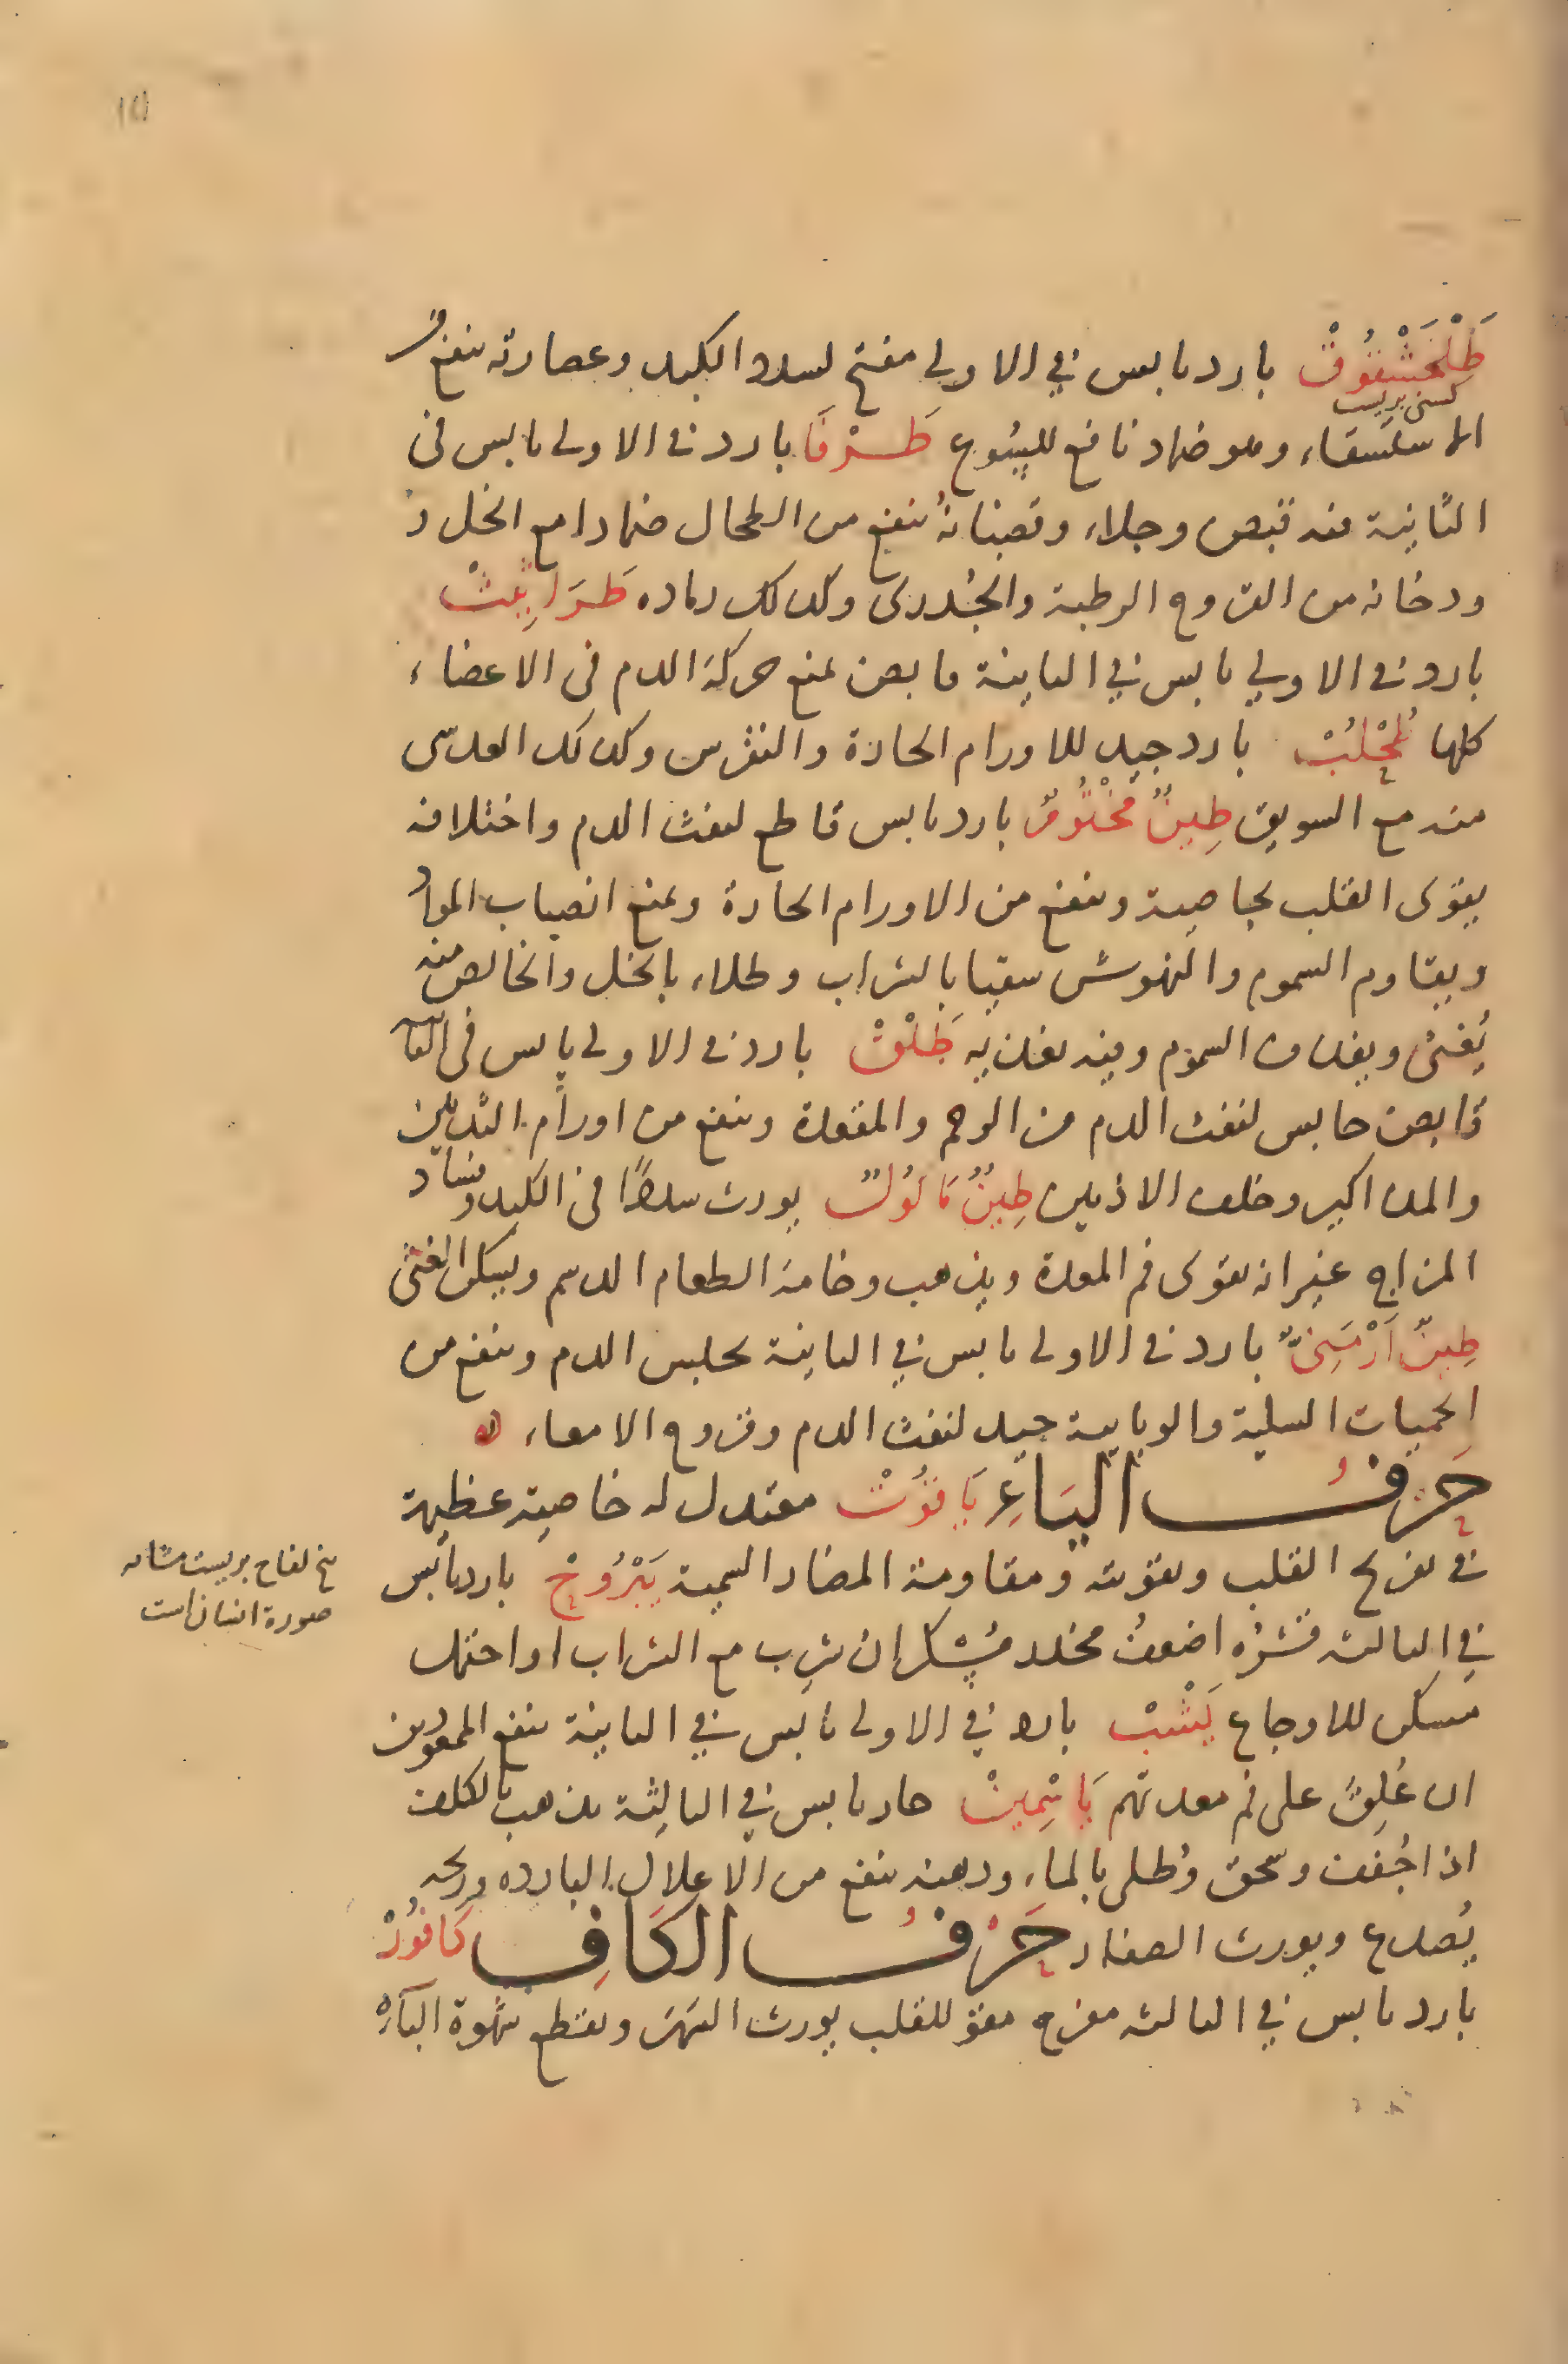 طَلَخَشْقُوقْ بارد يابس في الاولي مفتح لسدد الكبد وعصارته ينفع من
الاستسقاء وهو ضماد نافع للسوع طَرْفَا بارد في الاولى يابس فى
الثانية فيه قبض وجلاء وقضبانه ينفع من الطحال ضمادا مع الخل و
ودخانه من القروح الرطبة والجدرى وكذلك رماده طَرَاثِيثْ
بارد في الاولي يابس في الثانية قابض يمنع حركة الدم فى الاعضاء
كلها طُحْلُبْ بارد جيد للاورام الحارة والنقرس وكذلك العدسى
منه مع السويق طِينٌ مَخْتُومٌ بارد يابس قاطع لنفث الدم واختلافه
يقوى القلب بخاصية وينفع من الاورام الحارة ويمنع انصباب المواد
ويقاوم السموم والنهوش سقيا بالشراب وطلاء بالخل والخالص منه
يُغثى ويقذف السموم وفيه تغذيه طَلْقْ بارد في الاولى يابس فى الثانية
قابض حابس لنفث الدم من الرحم والمقعدة وينفع من اورام الثديين
والمذاكير وخلف الاذنين طِينٌ مَاكُولٌ يورث سددًا فى الكبد وفساد
المزاج غير انه يقوى فم المعدة ويذهب وخامة الطعام الدسم ويسكن الغثى
طِينٌ اَرْمَنِىٌّ بارد في الاولى يابس في الثانية يحبس الدم وينفع من
الحميات السلية والوبايية جيد لنفث الدم وقروح الامعاء ه
حَرْفُ اليَاءِ يَاقُوتْ معتدل له خاصية عظيمة
في تفريح القلب وتقويته ومقاومة المضار السمية يَبْرُوحْ بارد يابس
في الثالثه قشرُه اضعف مخدر مُسْكر ان شرب مع الشراب او احتمل
مسكن للاوجاع يَشْبْ بارد في الاولى يابس في الثانية ينفع الممعودين
ان عُلِقَ على فم معدتهم يَاسْمِينْ حار يابس في الثالِثة يذهب بالكلف
اذا جُفف وسحق وطلى بالماء ودهنه ينفع من الاعلال الباردة وريحه
يُصدع ويورث الصفار حَرْفُ الكَافِ كَافُورْ
بارد يابس في الثالثه مفرح مقو للقلب يورث السَهَرَ ويقطع شهوة الباَهِ
بيخ لفاح بريست مشابه
صورة انسان است